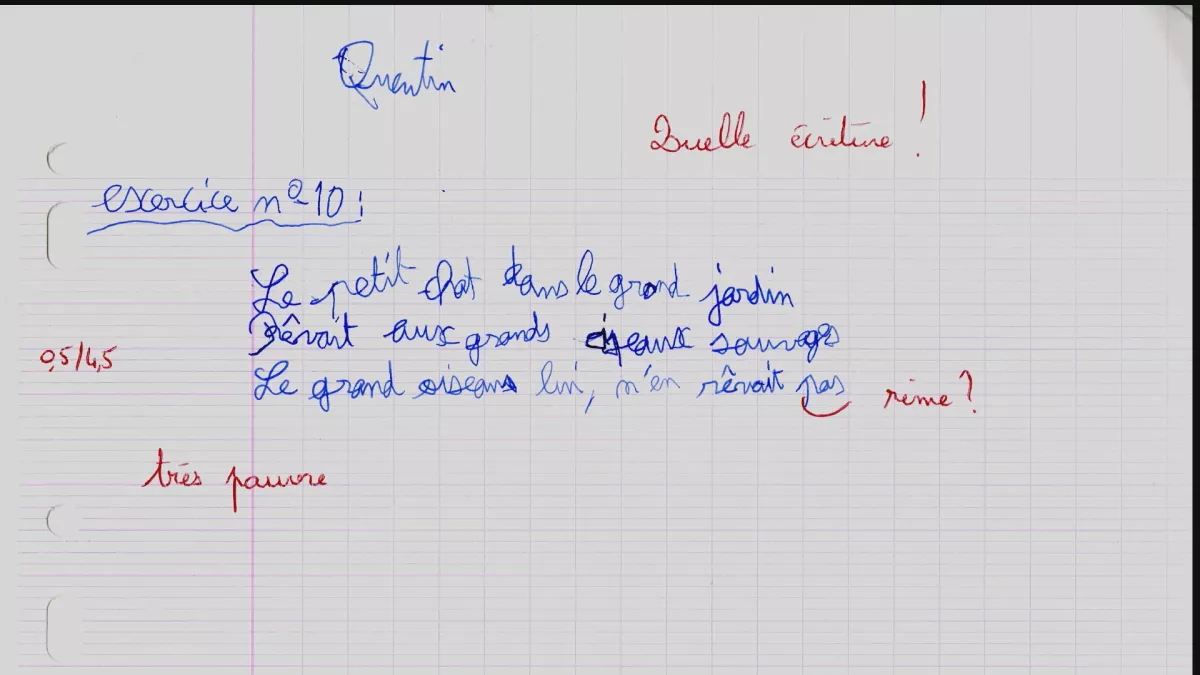 Quentin
Quelle écriture !
exercice nº 10 :
Le petit chat dans le grand jardin
Rêvait aux grands oiseaux sauvages
0,5/4,5
Le grand oiseau lui, n'en rêvait pas
rime ?
très pauvre